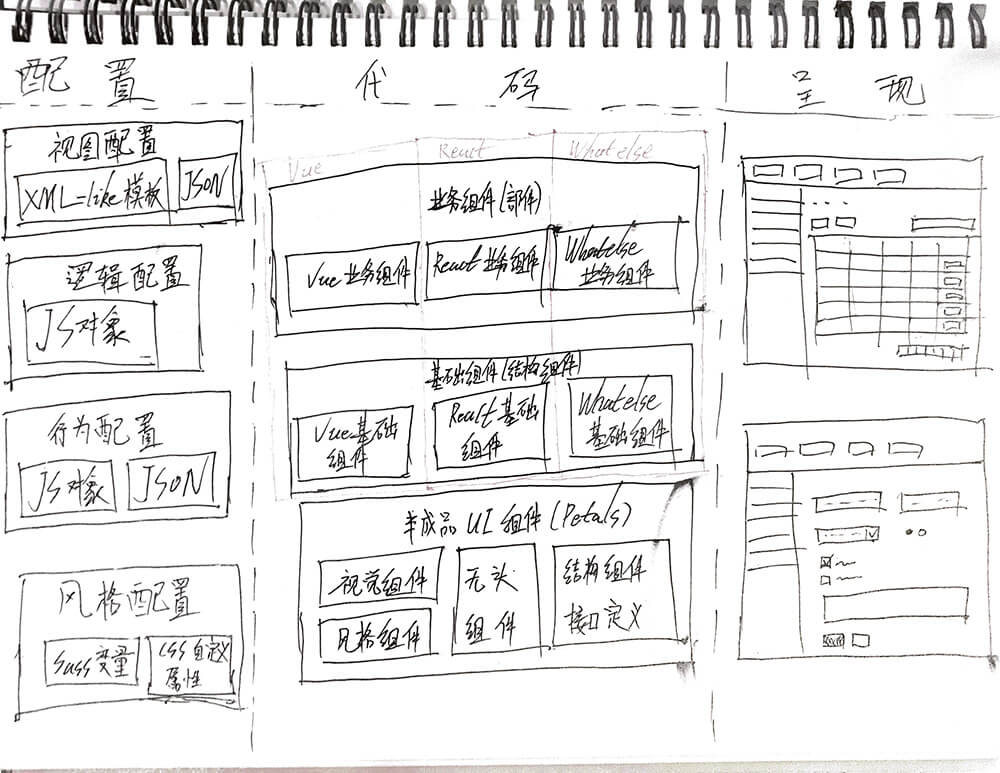 配置
代码
呈现
视图配置
XML-like模板
JSON
逻辑配置
JS对象
行为配置
JS对象
JSON
风格配置
Sass变量
CSS自定义
属性
Vue
React
Whatelse
业务组件(部件)
Vue业务组件
React业务组件
Whatelse
业务组件
基础组件(结构组件)
Vue基础
组件
React基础
组件
Whatelse
基础组件
半成品UI组件(Petals)
视觉组件
风格组件
无头
组件
结构组件
接口定义